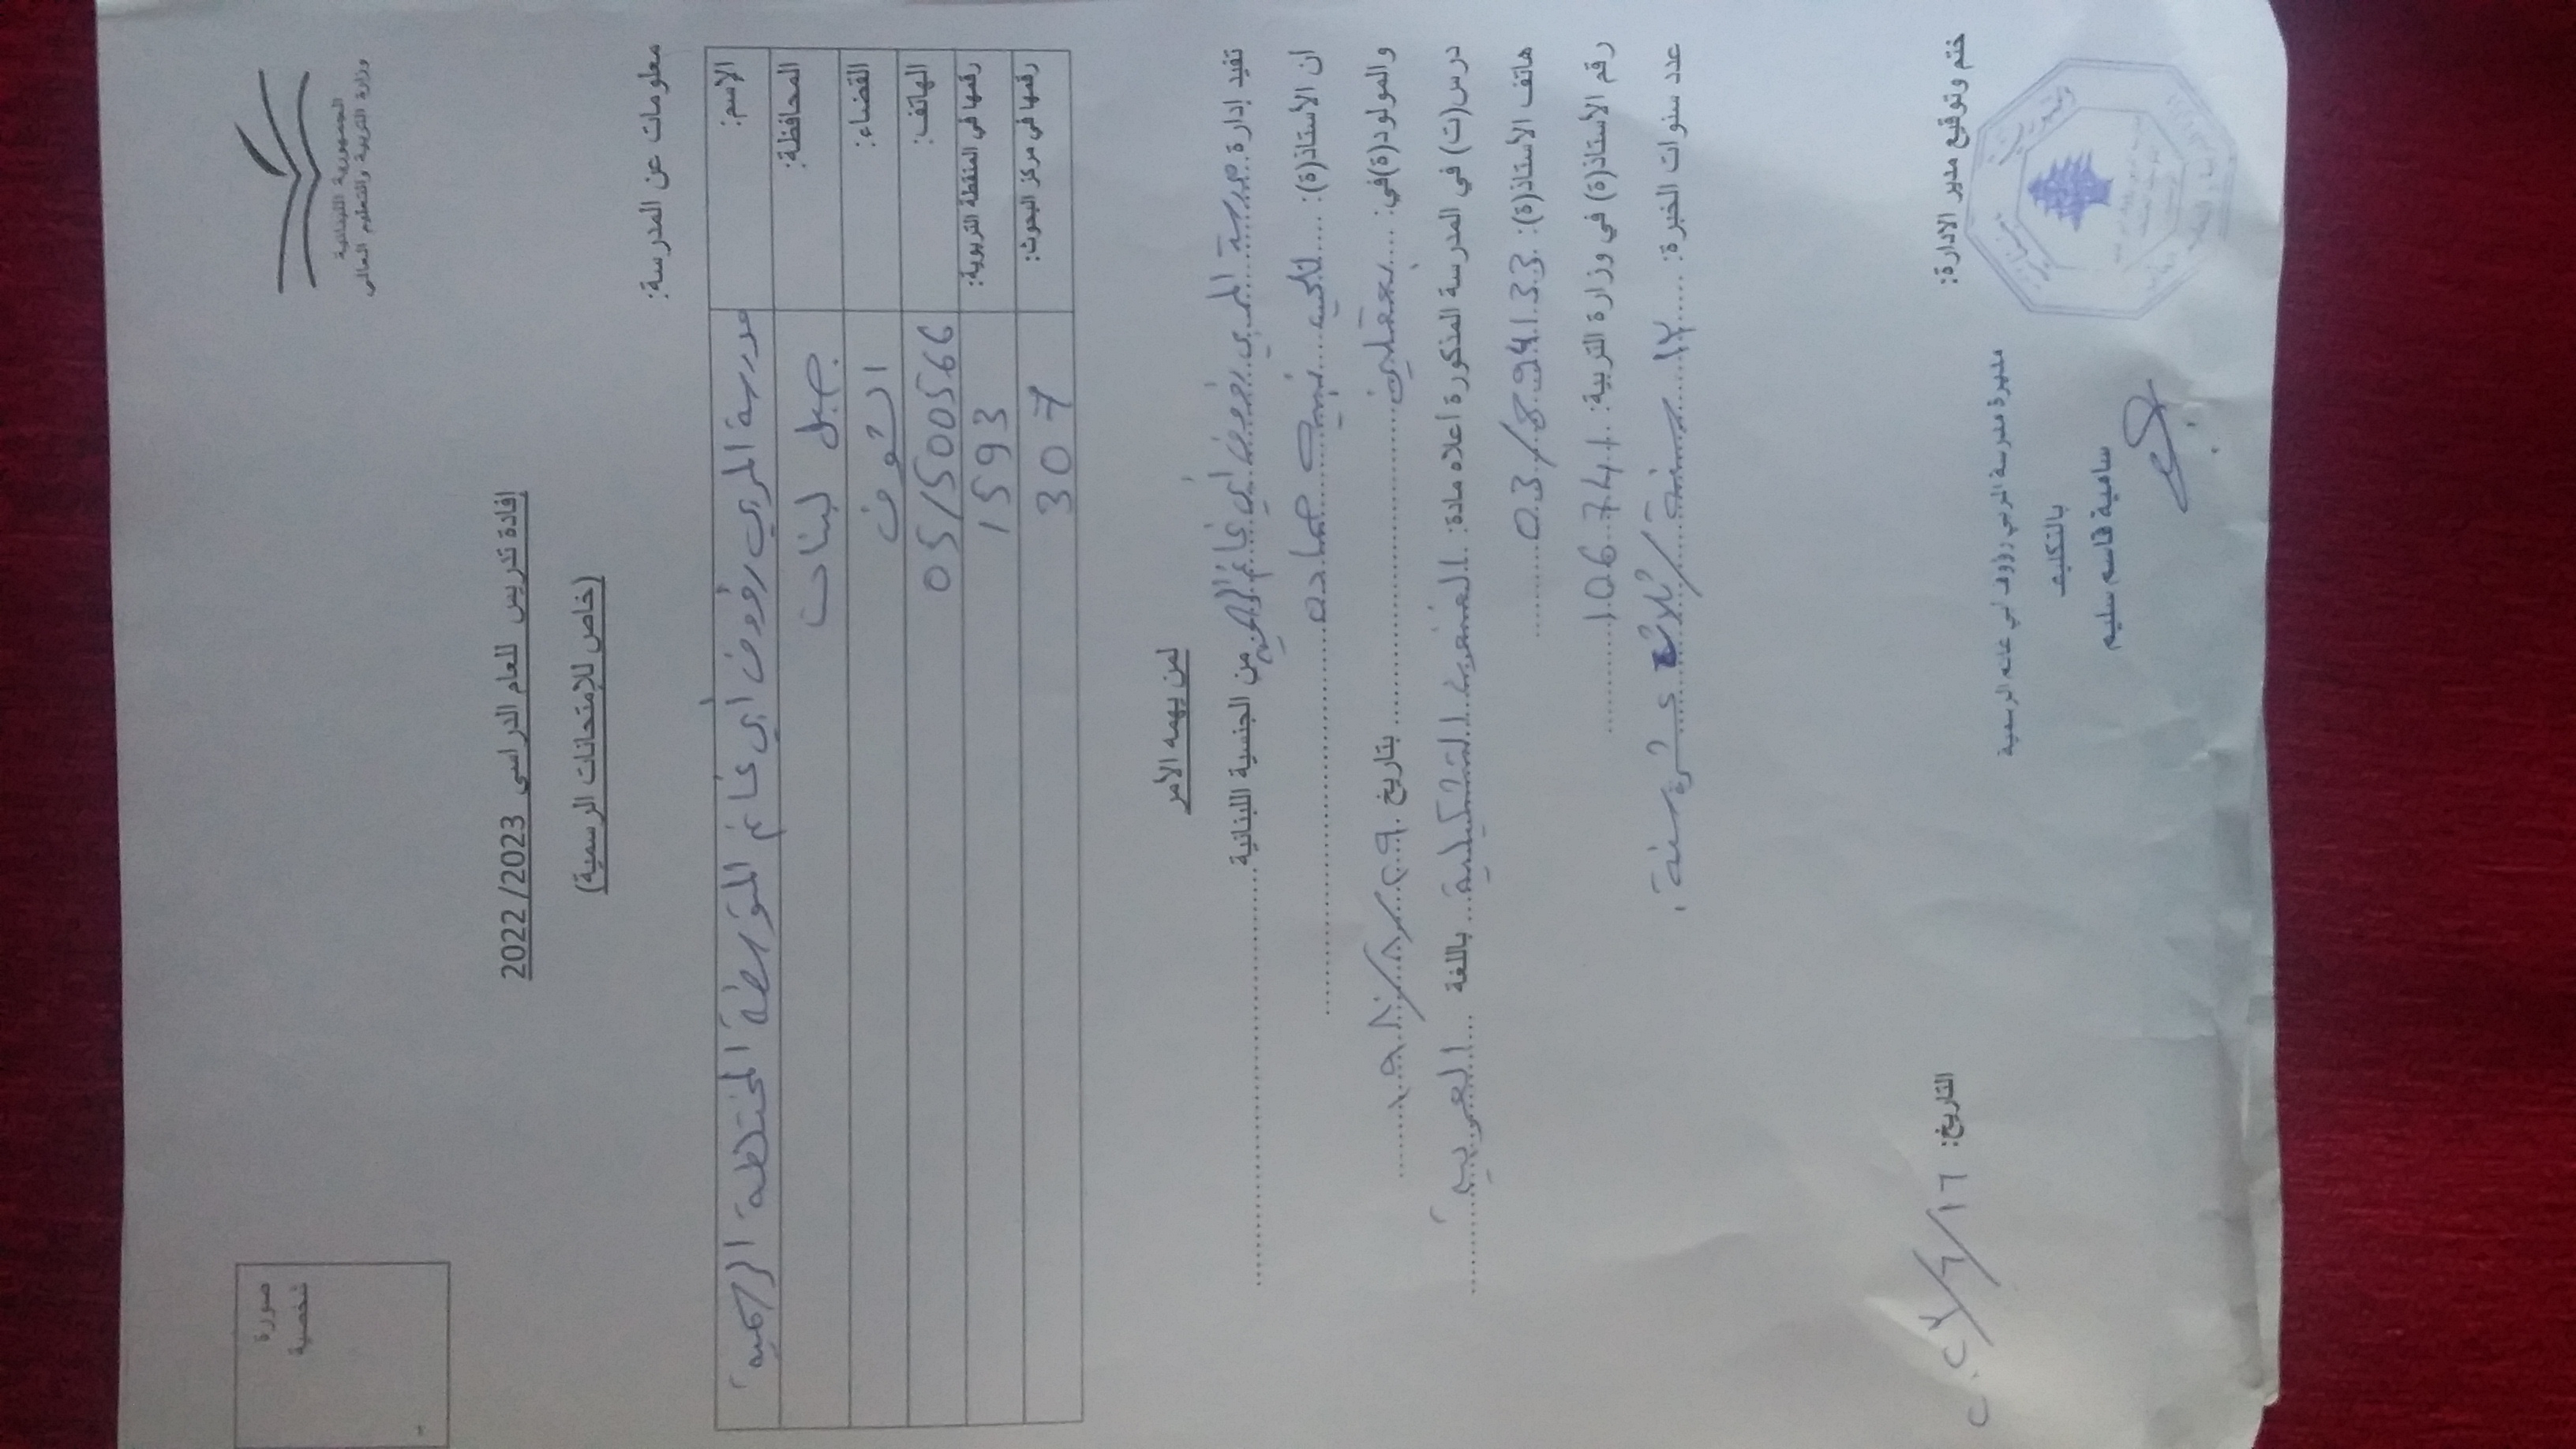 الجمهورية اللبنانية
وزارة التربية والتعليم العالي
صورة
شخصية
إفادة تدريس للعام الدراسي 2022/2023
(خاص للإمتحانات الرسمية)
معلومات عن المدرسة:
الإسم: مدرسة المربي رؤوف أبي غانم المتوسطة المختلطة الرسمية
المحافظة: جبل لبنان
القضاء: الشوف
الهاتف: 05/500566
رقمها في المنطقة التربوية: 1593
رقمها في مركز البحوث: 307
لمن يهمه الأمر
تفيد إدارة مدرسة المربي رؤوف أبي غانم الرسمية من الجنسية اللبنانية
ان الأستاذ(ة): نبيه حماده
والمولود(ة)في: بعقلين بتاريخ
درس(ت) في المدرسة المذكورة أعلاه مادة: الفنون التشكيلية باللغة العربية
هاتف الأستاذ(ة): 03/894133
رقم الأستاذ(ة) في وزارة التربية: 106741
عدد سنوات الخبرة: ١٣ سنة / ثلاثة عشر سنة.
ختم وتوقيع مدير الادارة:
التاريخ: ١٦/٦/٢٠٢٣
مديرة مدرسة المربي رؤوف ابي غانم الرسمية
بالتكليف
سامية قاسم سليم